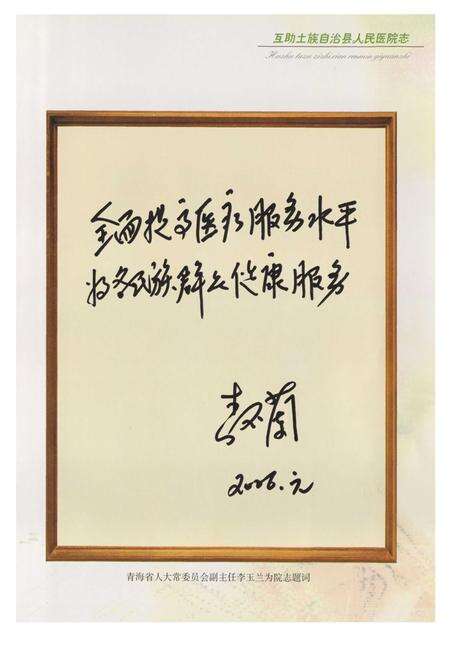 互助土族自治县人民医院志
Huzhu tuzu zizhixian renmin yiyuanzhi
全面提高医疗服务水平
为各民族群众健康服务
2006.元
青海省人大常委员会副主任李玉兰为院志题词